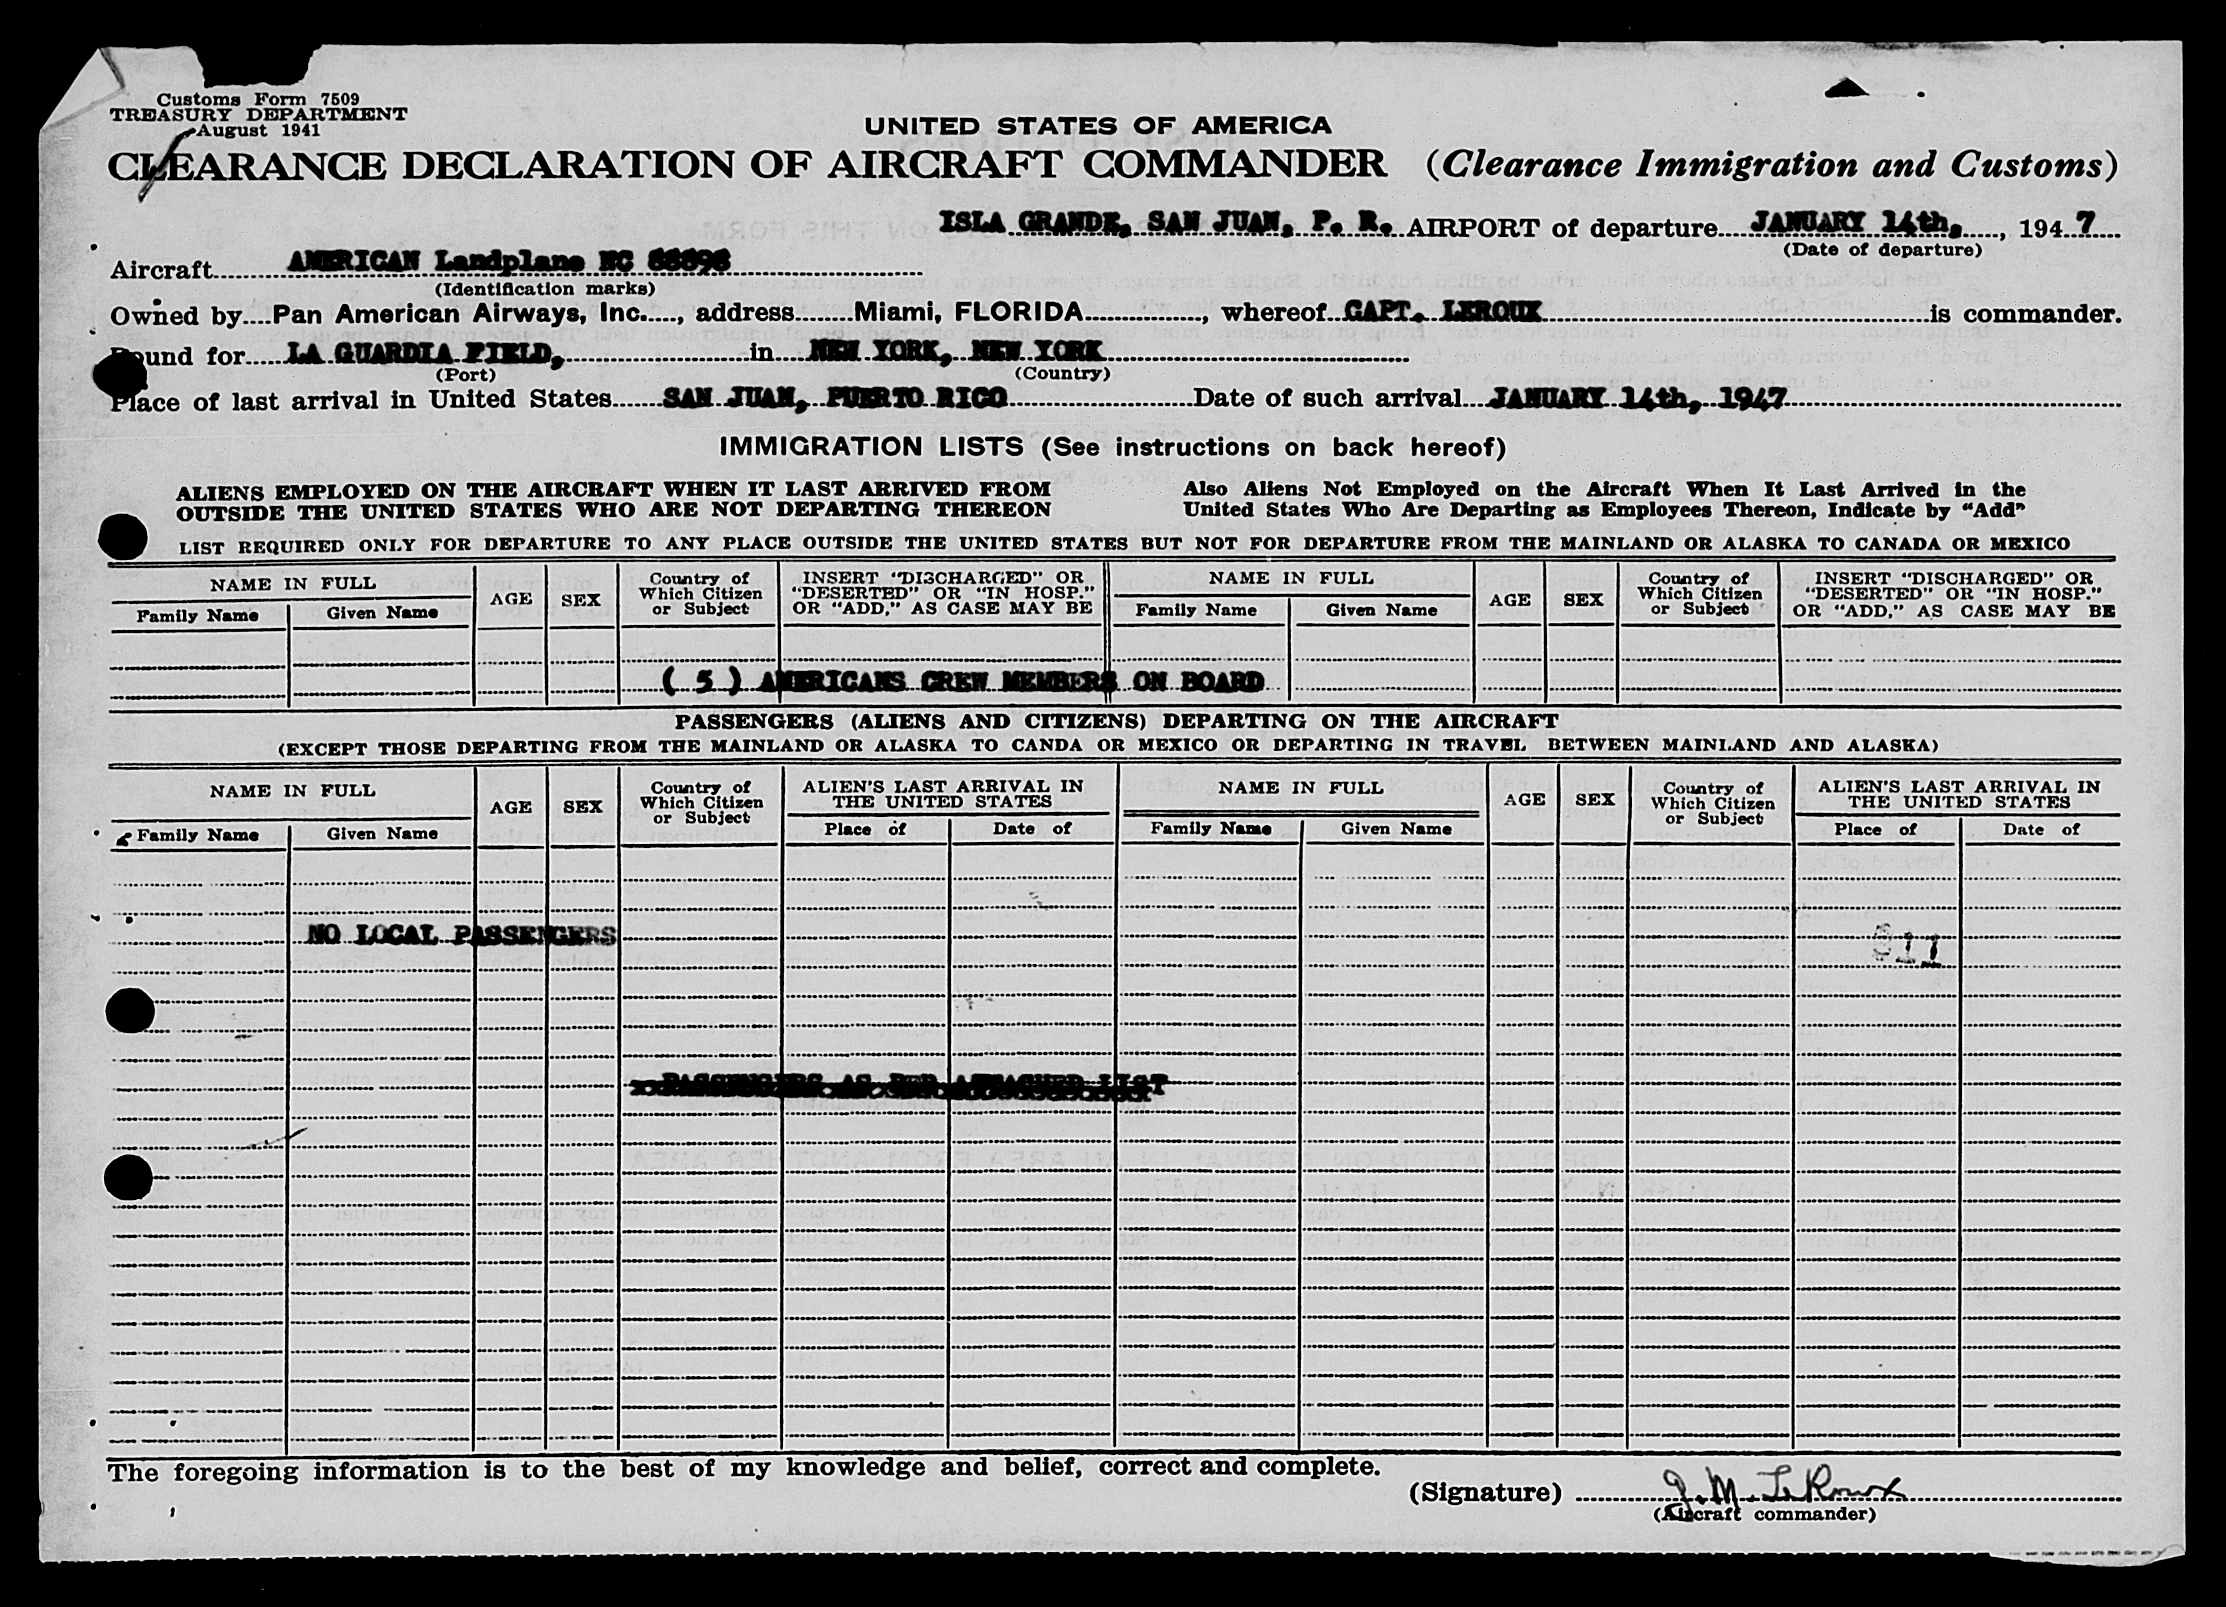 Customs Form 7509
TREASURY DEPARTMENT
August 1941
UNITED STATES OF AMERICA
CLEARANCE DECLARATION OF AIRCRAFT COMMANDER (Clearance Immigration and Customs)
ISLA GRANDE, SAN JUAN, P. R. AIRPORT of departure JANUARY 14th, , 1947
(Date of departure)
Aircraft AMERICAN Landplane NC
(Identification marks)
Owned by Pan American Airways, Inc. , address Miami, FLORIDA , whereof CAPT. LEROUX is commander.
Bound for LA GUARDIA FIELD, in NEW YORK, NEW YORK
(Port) (Country)
Place of last arrival in United States SAN JUAN, PUERTO RICO Date of such arrival JANUARY 14th, 1947
IMMIGRATION LISTS (See instructions on back hereof)
ALIENS EMPLOYED ON THE AIRCRAFT WHEN IT LAST ARRIVED FROM
OUTSIDE THE UNITED STATES WHO ARE NOT DEPARTING THEREON
Also Aliens Not Employed on the Aircraft When It Last Arrived in the
United States Who Are Departing as Employees Thereon, Indicate by "Add"
LIST REQUIRED ONLY FOR DEPARTURE TO ANY PLACE OUTSIDE THE UNITED STATES BUT NOT FOR DEPARTURE FROM THE MAINLAND OR ALASKA TO CANADA OR MEXICO
NAME IN FULL
Family Name Given Name
AGE
SEX
Country of
Which Citizen
or Subject
INSERT "DISCHARGED" OR
"DESERTED" OR "IN HOSP."
OR "ADD," AS CASE MAY BE
NAME IN FULL
Family Name Given Name
AGE
SEX
Country of
Which Citizen
or Subject
INSERT "DISCHARGED" OR
"DESERTED" OR "IN HOSP."
OR "ADD," AS CASE MAY BE
( 5 ) AMERICANS CREW MEMBERS ON BOARD
PASSENGERS (ALIENS AND CITIZENS) DEPARTING ON THE AIRCRAFT
(EXCEPT THOSE DEPARTING FROM THE MAINLAND OR ALASKA TO CANDA OR MEXICO OR DEPARTING IN TRAVEL BETWEEN MAINLAND AND ALASKA)
NAME IN FULL
Family Name Given Name
AGE
SEX
Country of
Which Citizen
or Subject
ALIEN'S LAST ARRIVAL IN
THE UNITED STATES
Place of Date of
NAME IN FULL
Family Name Given Name
AGE
SEX
Country of
Which Citizen
or Subject
ALIEN'S LAST ARRIVAL IN
THE UNITED STATES
Place of Date of
NO LOCAL PASSENGERS
PASSENGERS AS PER ATTACHED LIST
The foregoing information is to the best of my knowledge and belief, correct and complete.
(Signature) J. M. LeRoux
(Aircraft commander)